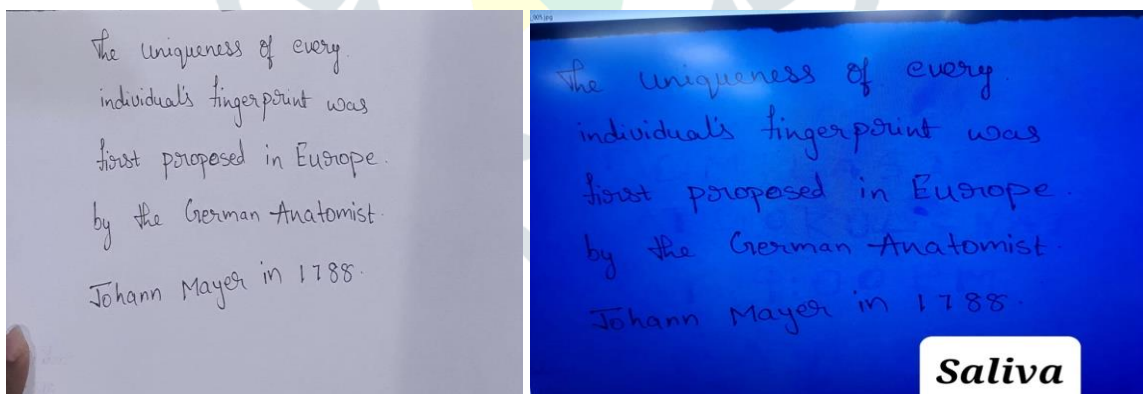 The uniqueness of every
individual's fingerprint was
first proposed in Europe.
by the German Anatomist.
Johann Mayer in 1788.
_009.jpg
The uniqueness of every
individual's fingerprint was
first proposed in Europe.
by the German Anatomist.
Johann Mayer in 1788.
Saliva